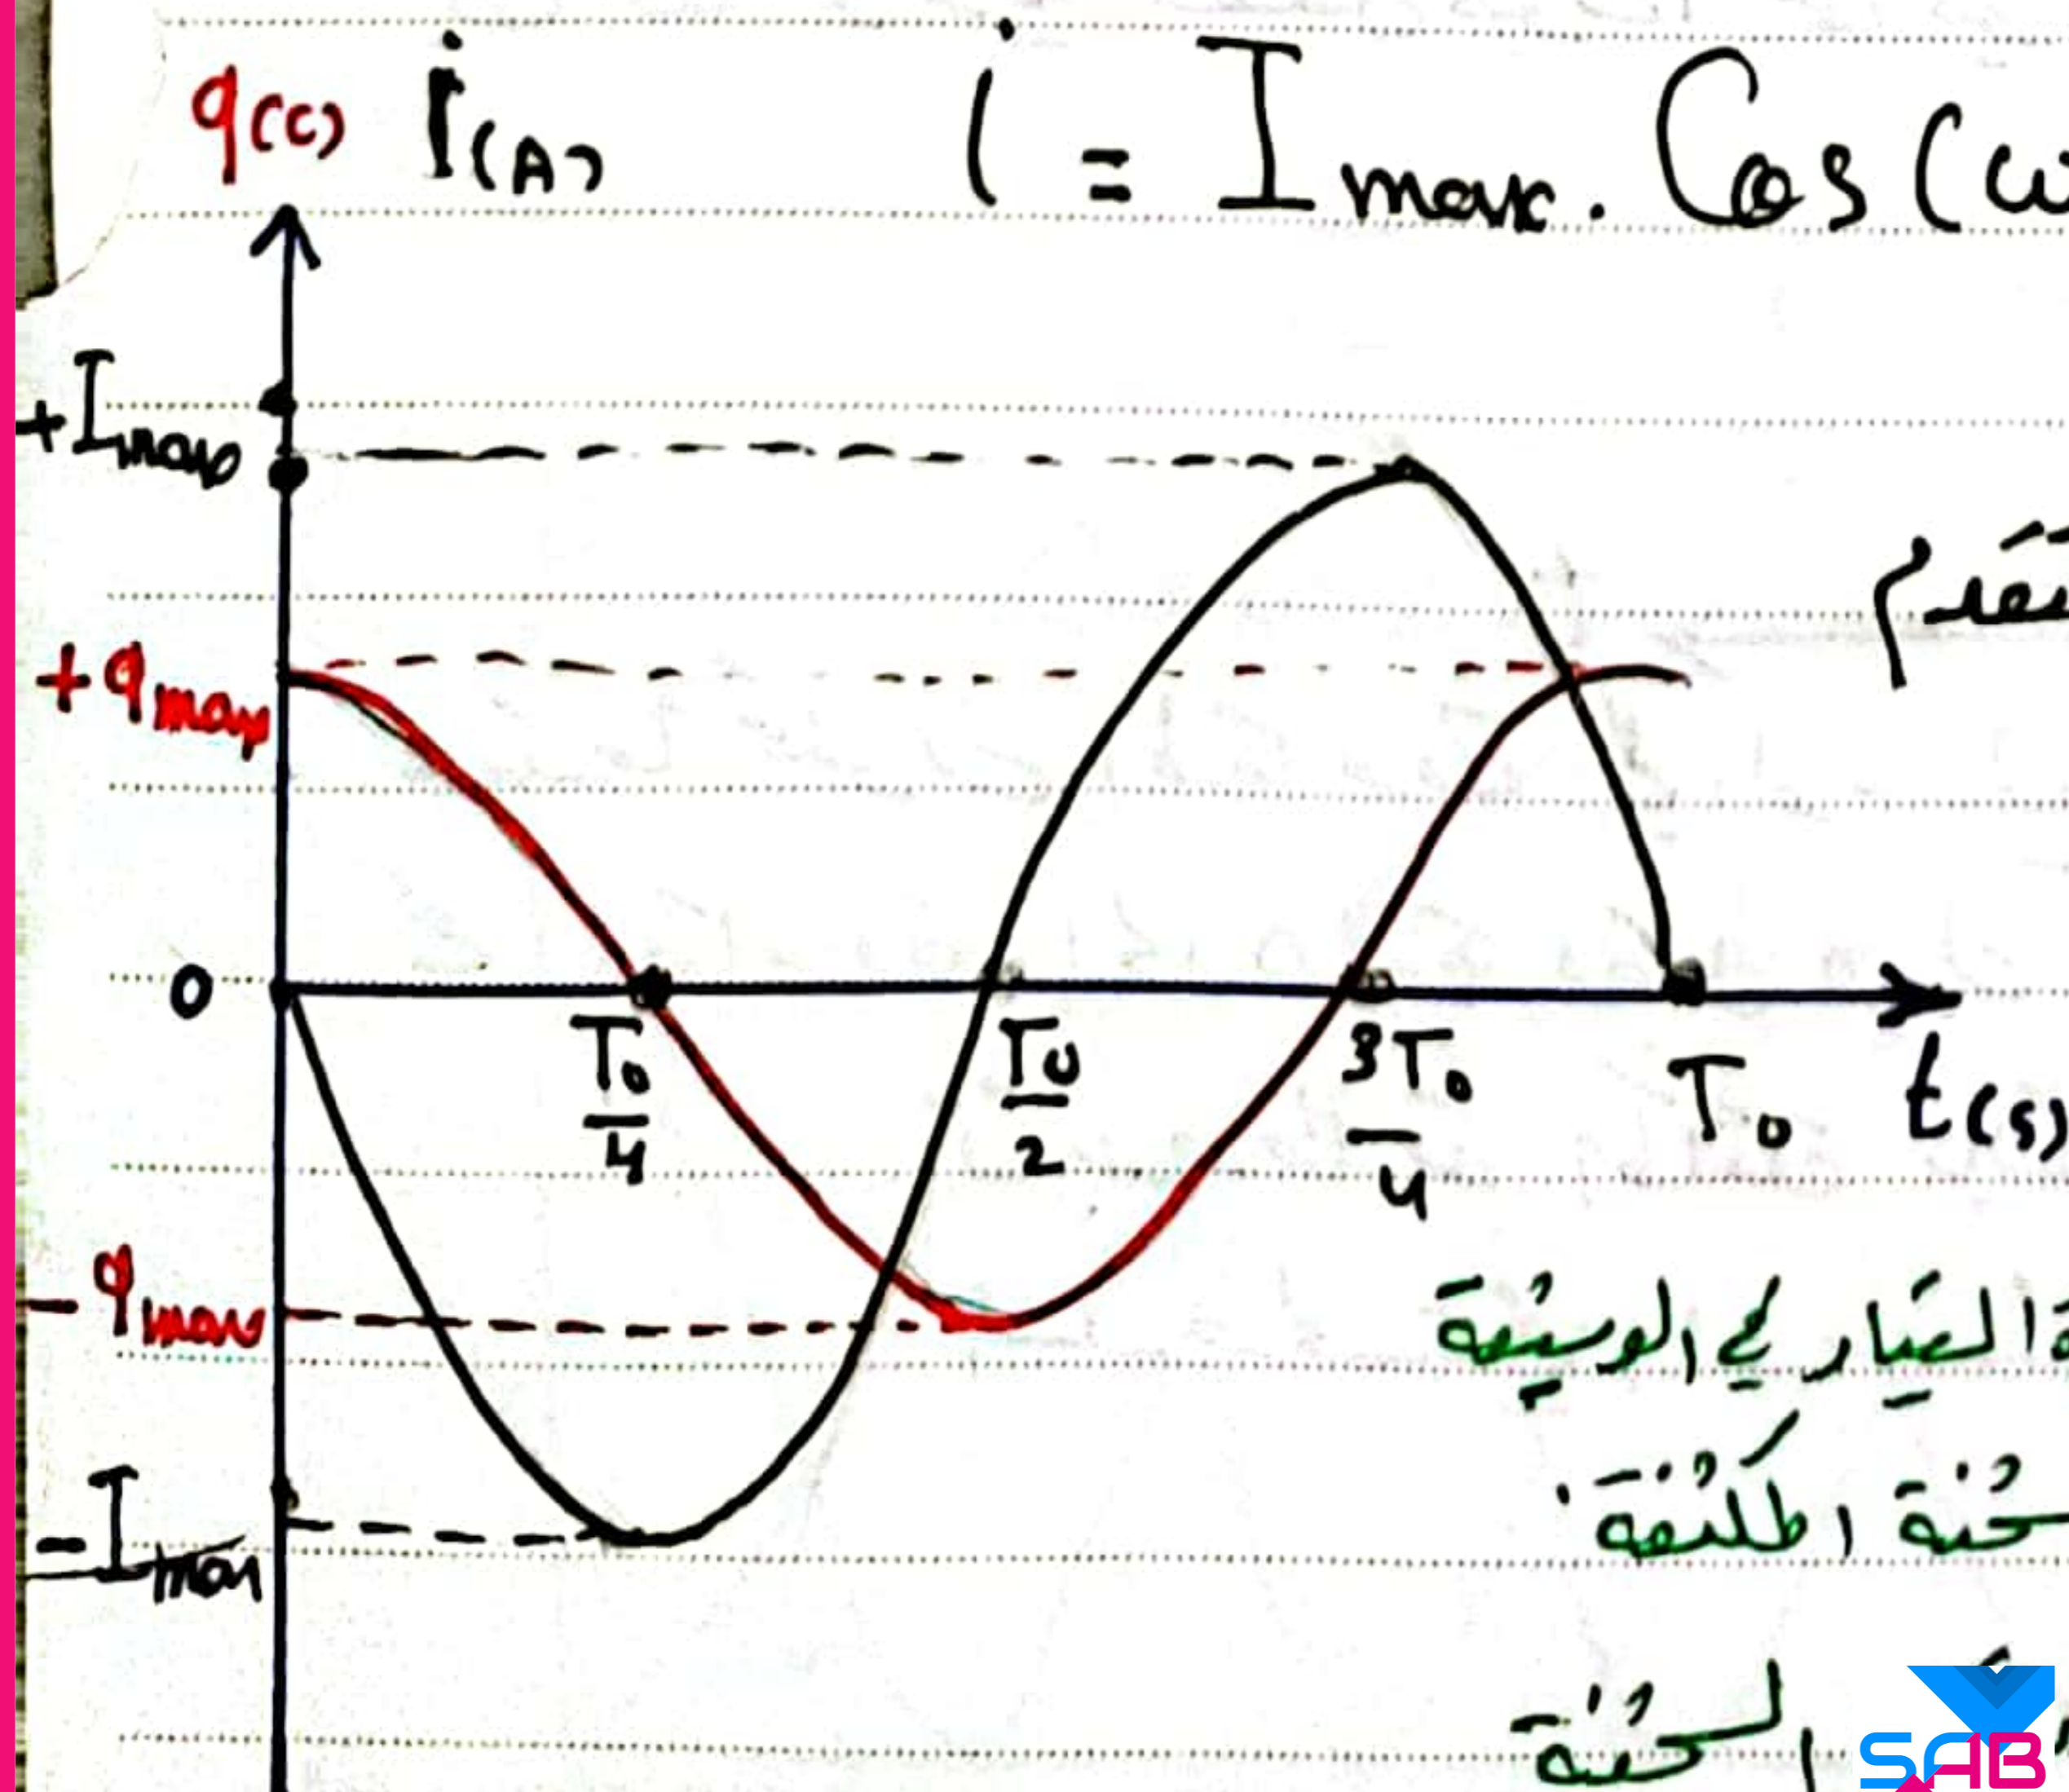 q(c) i(A) i = Imax. Cos(ω
+Imax
+qmax
0
T0/4 T0/2 3T0/4 T0 t(s)
-qmax
التيار في الوشيعة
-Imax
المكثفة
الشحنة
SAB